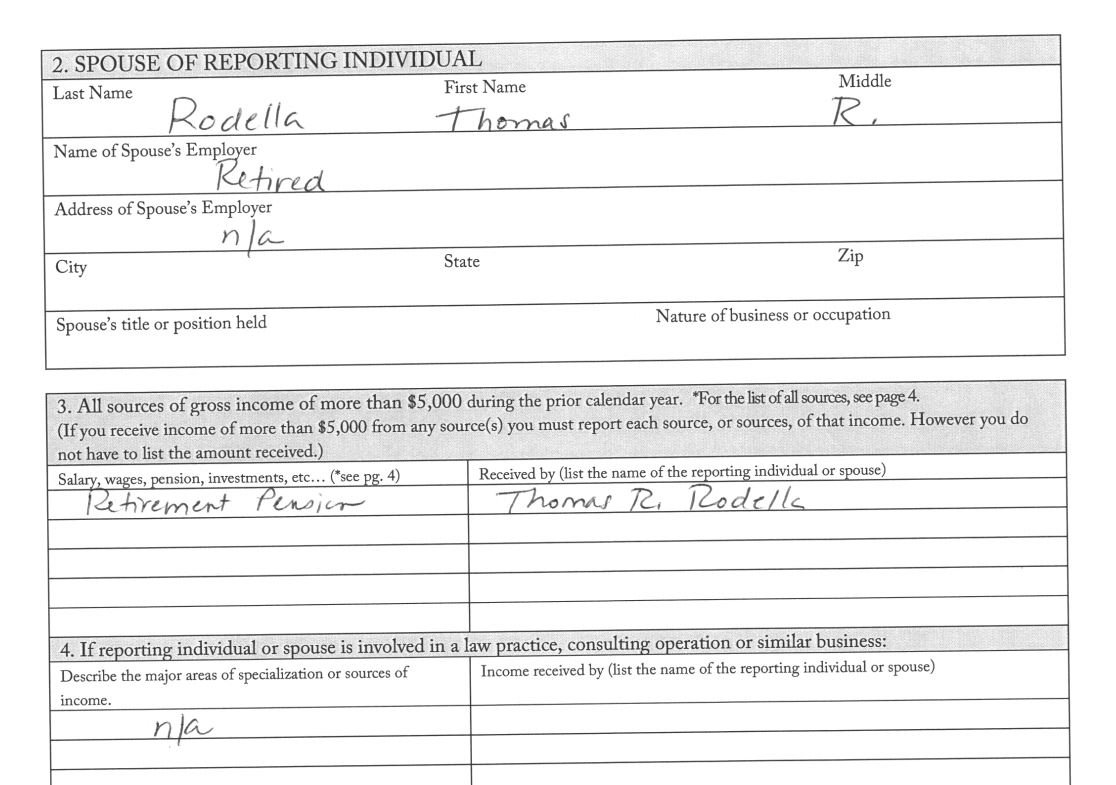 2. SPOUSE OF REPORTING INDIVIDUAL
Last Name First Name Middle
Rodella Thomas R.
Name of Spouse's Employer
Retired
Address of Spouse's Employer
n/a
City State Zip
Spouse's title or position held Nature of business or occupation
3. All sources of gross income of more than $5,000 during the prior calendar year. *For the list of all sources, see page 4.
(If you receive income of more than $5,000 from any source(s) you must report each source, or sources, of that income. However you do
not have to list the amount received.)
Salary, wages, pension, investments, etc... (*see pg. 4) Received by (list the name of the reporting individual or spouse)
Retirement Pension Thomas R. Rodella
4. If reporting individual or spouse is involved in a law practice, consulting operation or similar business:
Describe the major areas of specialization or sources of Income received by (list the name of the reporting individual or spouse)
income.
n/a